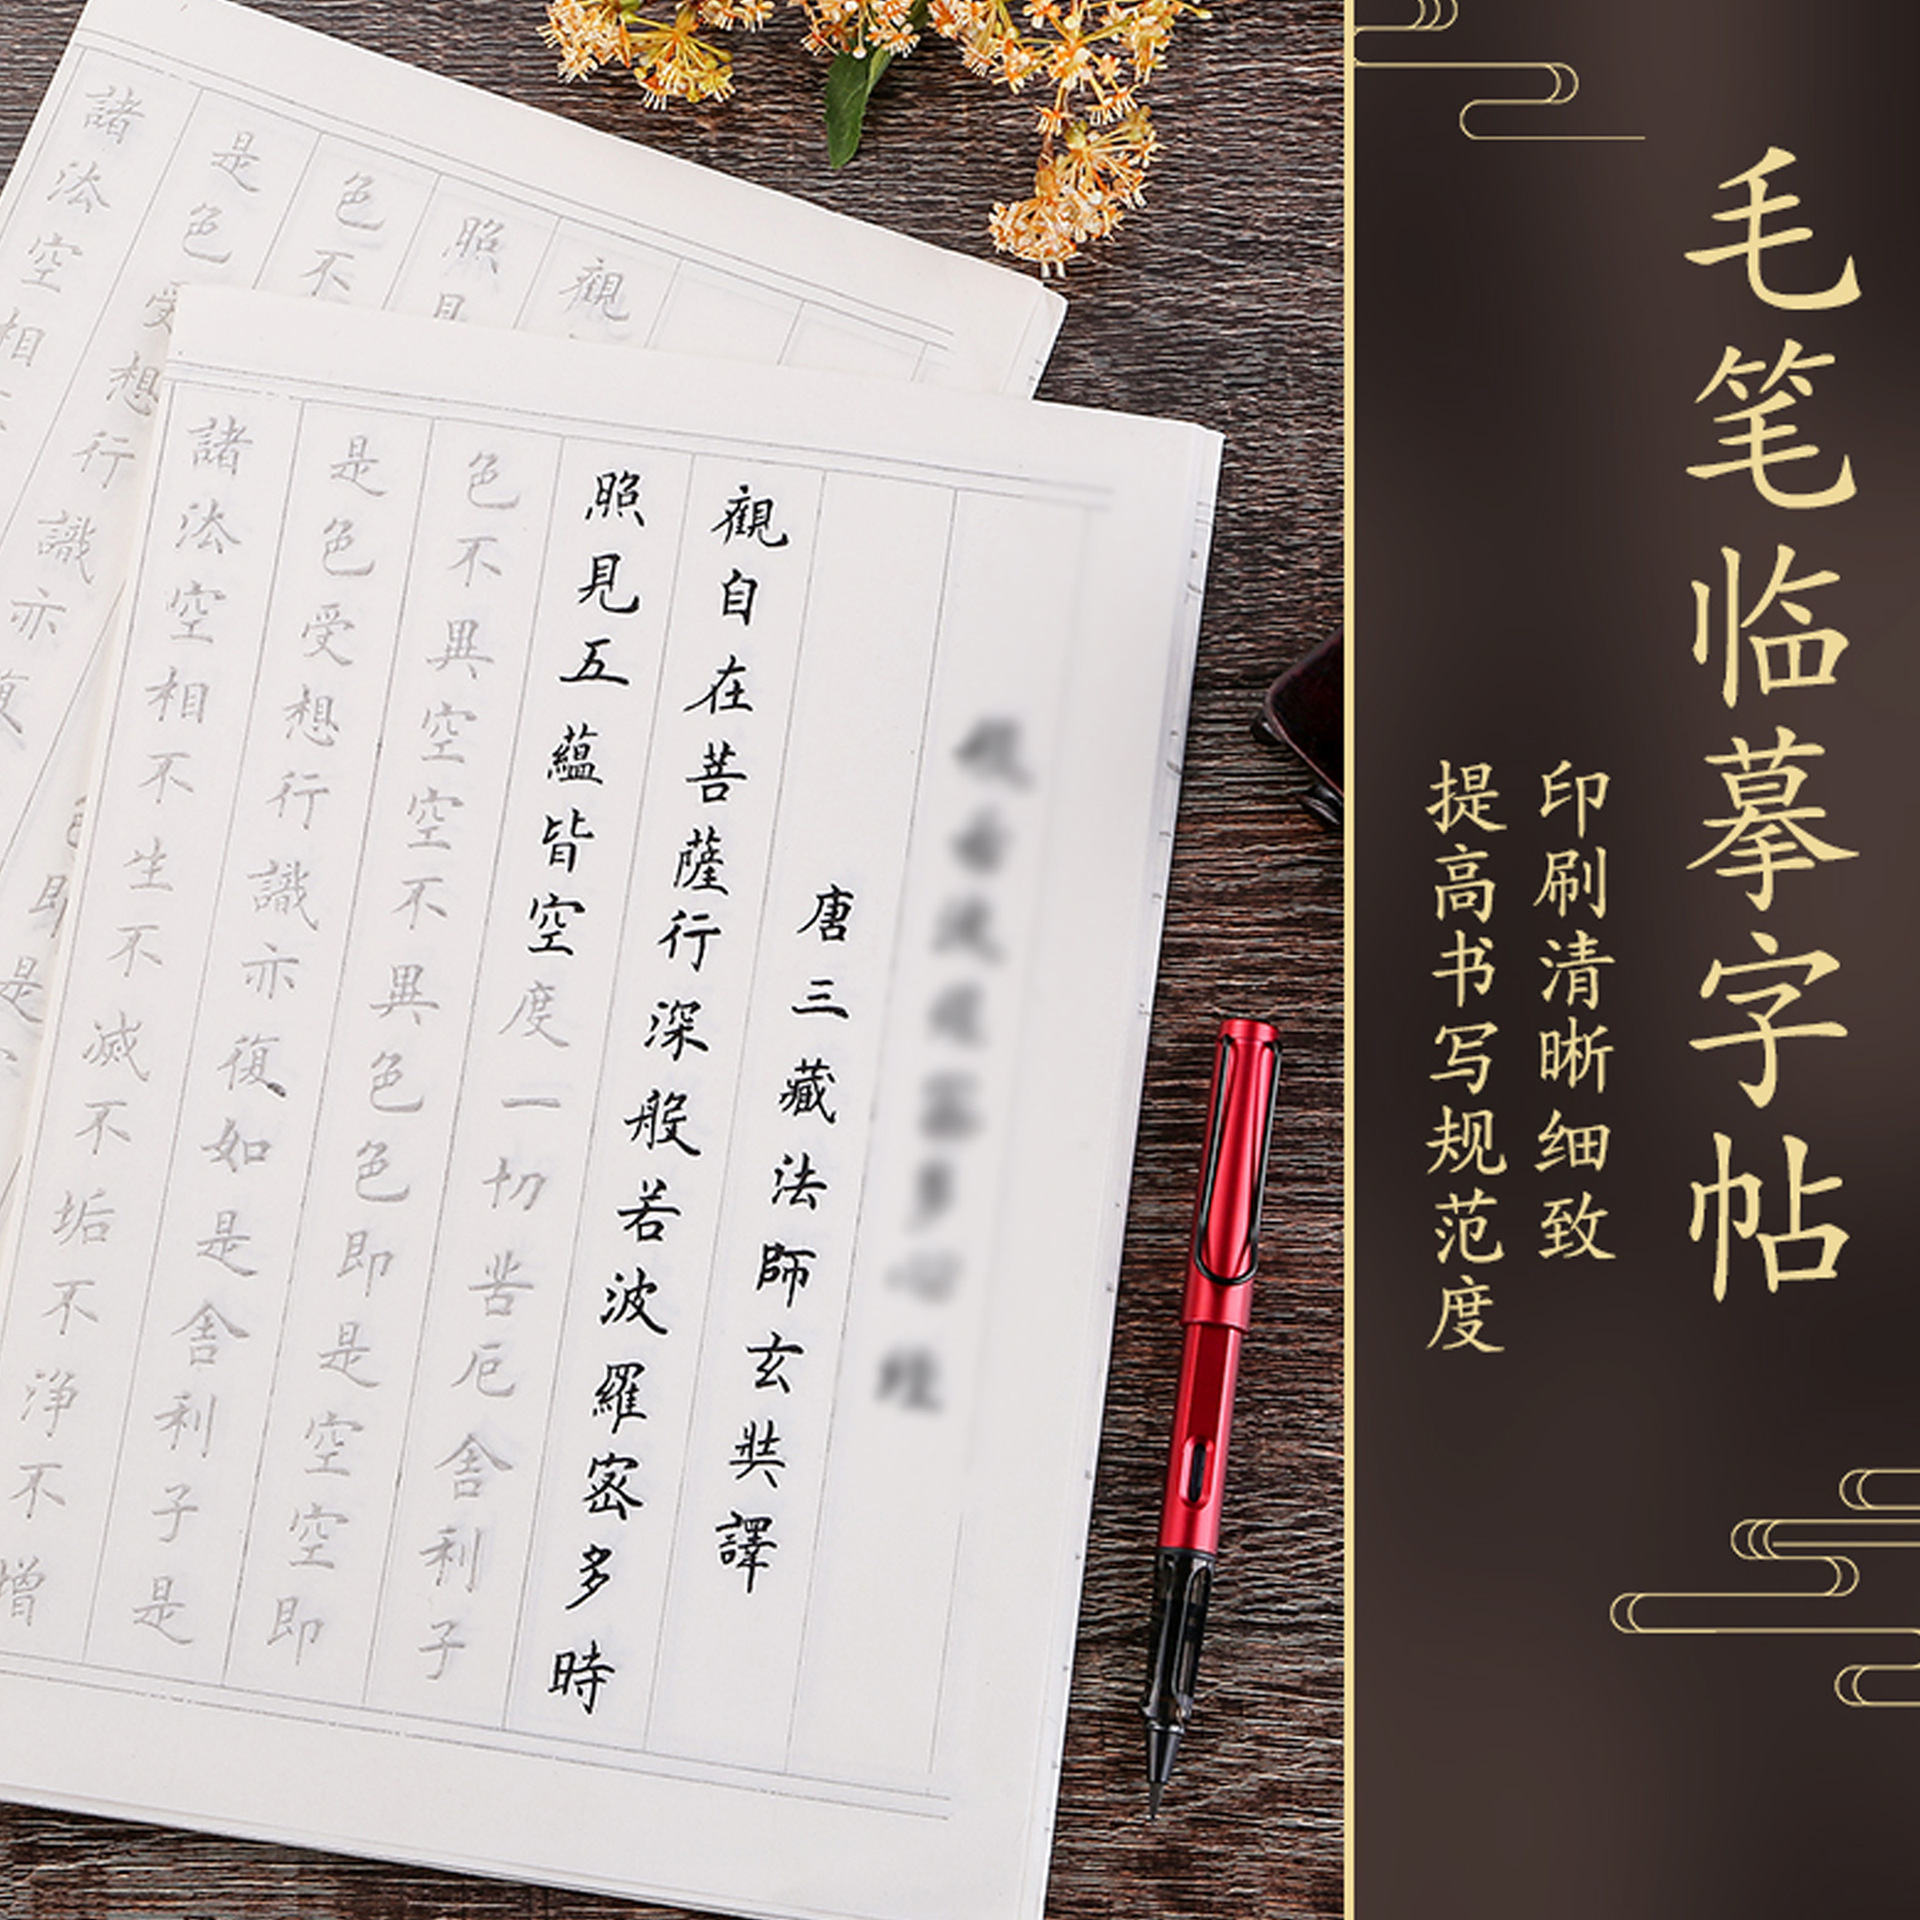 毛笔临摹字帖
印刷清晰细致
提高书写规范度
唐三藏法師玄奘譯
觀自在菩薩行深般若波羅密多時
照見五蘊皆空度一切苦厄舍利子
色不異空空不異色色即是空空即
是色受想行識亦復如是舍利子是
諸法空相不生不滅不垢不淨不增
觀
照見
色不
是色受想行識亦復
諸法空相